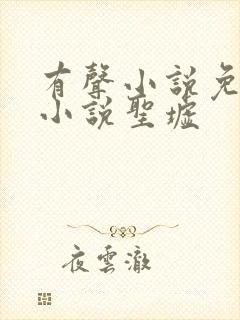 有聲小說免
小說聖墟
夜雲澈